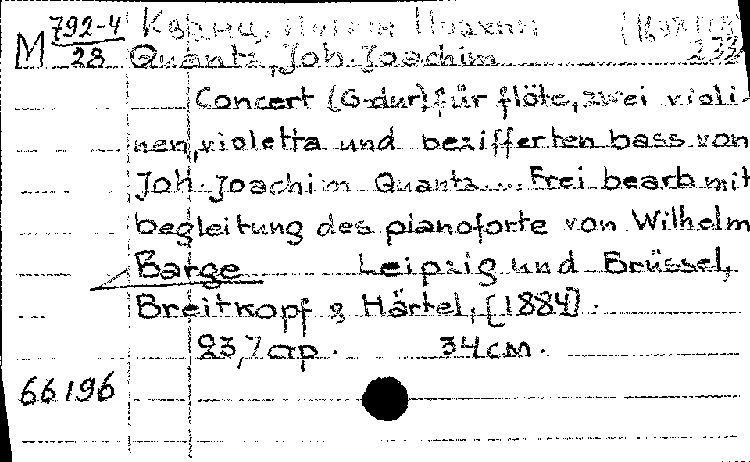 792-4 Кванц,
M 28 Quantz, Joh. Joachim 233
Concert (G-dur) für flöte, zwei violi-
nen, violetta und bezifferten bass von
Joh. Joachim Quantz... Frei bearb mit
begleitung des pianoforte von Wilhelm
Barge Leipzig und Brüssel,
Breitkopf & Härtel, [1884].
23,7 стр. 34 см.
66196